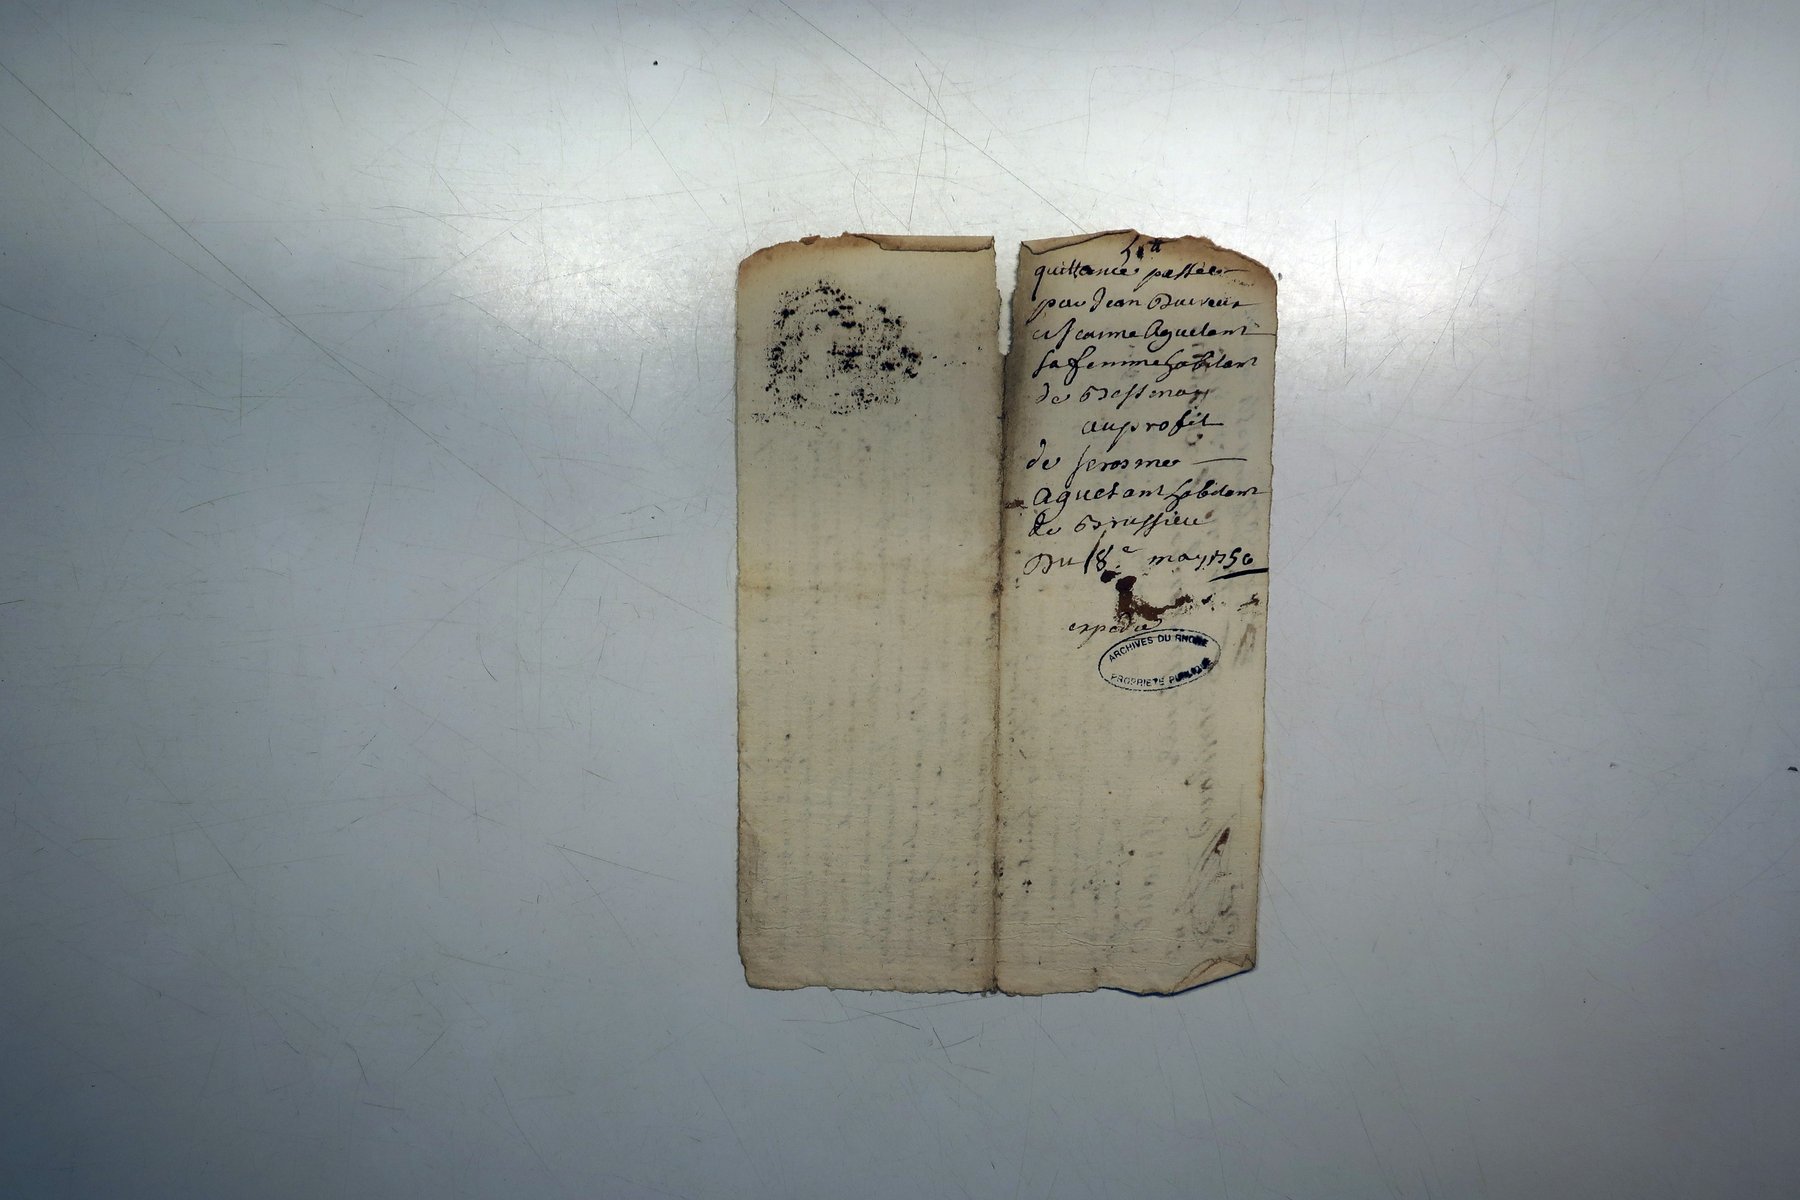 quittance passée
par Jean
et Jeanne Aguetant
sa femme habitant
de Bessenay
au profit
de Jerosme
Aguetant habitant
de Brussieu
Du 18e may 1750
expedié
ARCHIVES DU RHONE
PROPRIETE PUBLIQUE